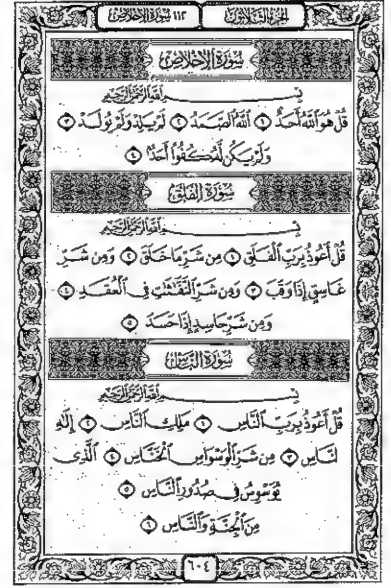 الجزء الثلاثون ١١٢ سورة الإخلاص
سورة الإخلاص
بِسْمِ اللَّهِ الرَّحْمَٰنِ الرَّحِيمِ
قُلْ هُوَ اللَّهُ أَحَدٌ ١ اللَّهُ الصَّمَدُ ٢ لَمْ يَلِدْ وَلَمْ يُولَدْ ٣
وَلَمْ يَكُن لَّهُ كُفُوًا أَحَدٌ ٤
سورة الفلق
بِسْمِ اللَّهِ الرَّحْمَٰنِ الرَّحِيمِ
قُلْ أَعُوذُ بِرَبِّ الْفَلَقِ ١ مِن شَرِّ مَا خَلَقَ ٢ وَمِن شَرِّ
غَاسِقٍ إِذَا وَقَبَ ٣ وَمِن شَرِّ النَّفَّٰثَٰتِ فِي الْعُقَدِ ٤
وَمِن شَرِّ حَاسِدٍ إِذَا حَسَدَ ٥
سورة الناس
بِسْمِ اللَّهِ الرَّحْمَٰنِ الرَّحِيمِ
قُلْ أَعُوذُ بِرَبِّ النَّاسِ ١ مَلِكِ النَّاسِ ٢ إِلَٰهِ
النَّاسِ ٣ مِن شَرِّ الْوَسْوَاسِ الْخَنَّاسِ ٤ الَّذِي
يُوَسْوِسُ فِي صُدُورِ النَّاسِ ٥
مِنَ الْجِنَّةِ وَالنَّاسِ ٦
٦٠٤